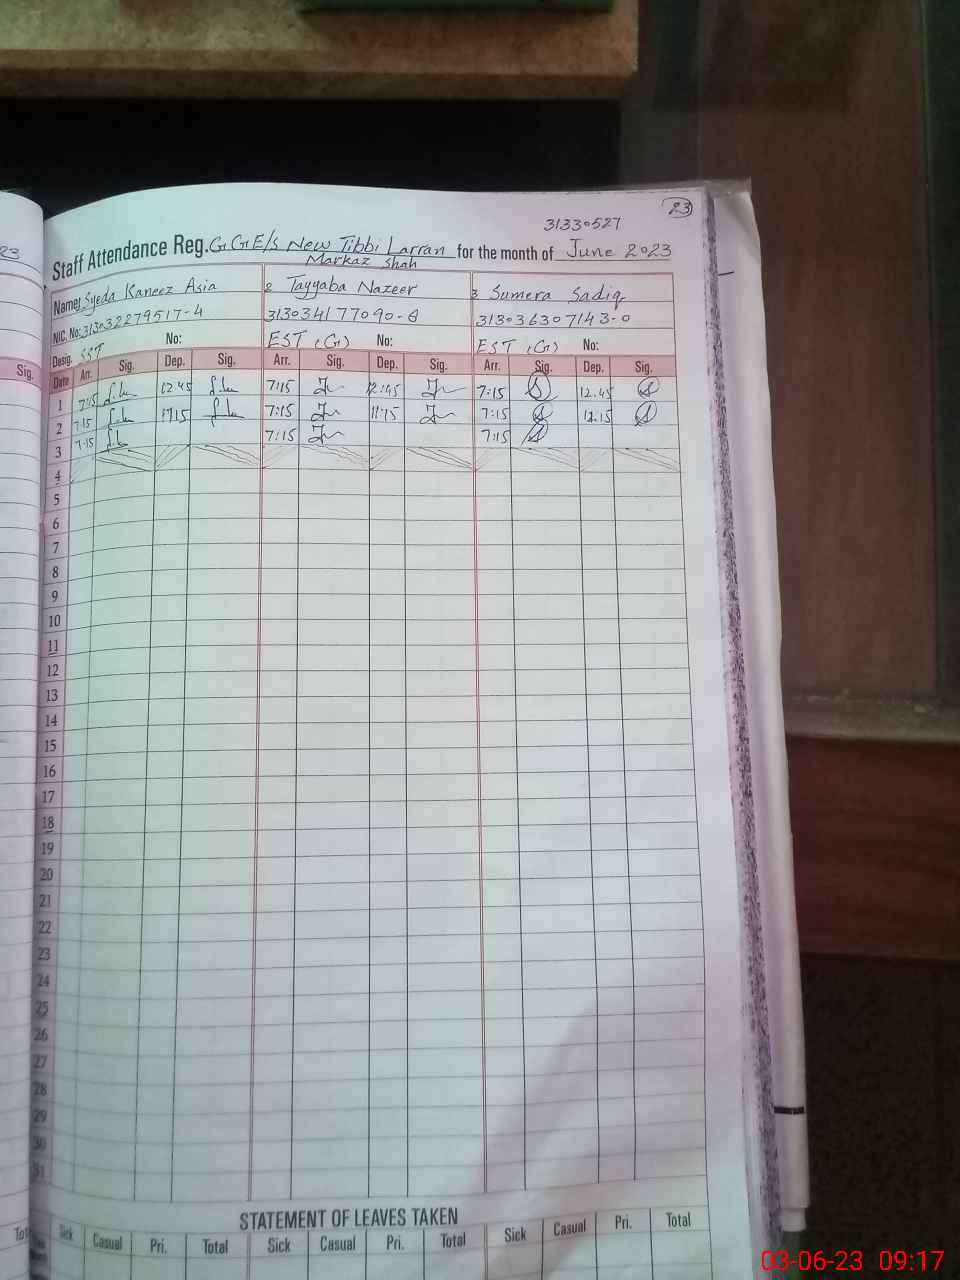 23
31330527
23
Staff Attendance Reg. G.G.E/S New Tibbi Larran for the month of June 2023
Markaz Shah
Name: Syeda Kaneez Asia 2 Tayyaba Nazeer 3 Sumera Sadiq
NIC. No: 3130322795 17-4 3130341 77090-6 313036307143-0
Desig. SST No: EST (G) No: EST (G) No:
Sig. Date Arr. Sig. Dep. Sig. Arr. Sig. Dep. Sig. Arr. Sig. Dep. Sig.
1 7:15 12 45 7:15 12:45 7:15 12.45
2 7:15 11 15 7:15 11:15 7:15 11.15
3 7:15 7:15 7:15
4
5
6
7
8
9
10
11
12
13
14
15
16
17
18
19
20
21
22
23
24
25
26
27
28
29
30
31
STATEMENT OF LEAVES TAKEN
Sick Casual Pri. Total Sick Casual Pri. Total Sick Casual Pri. Total
03-06-23 09:17